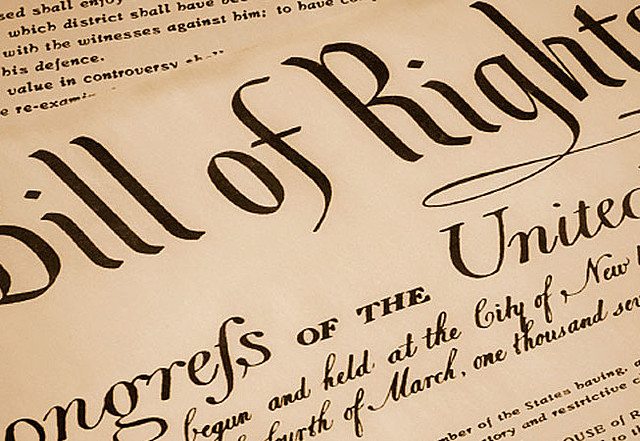 sed shall enjoy
which district shall have
with the witnesses against him; to have
his defence.
value in controversy
re-exami
Bill of Rights
Congreſs OF THE United
begun and held at the City of New
fourth of March, one thousand sev
mber of the States having,
tory and restrictive
OUSE of